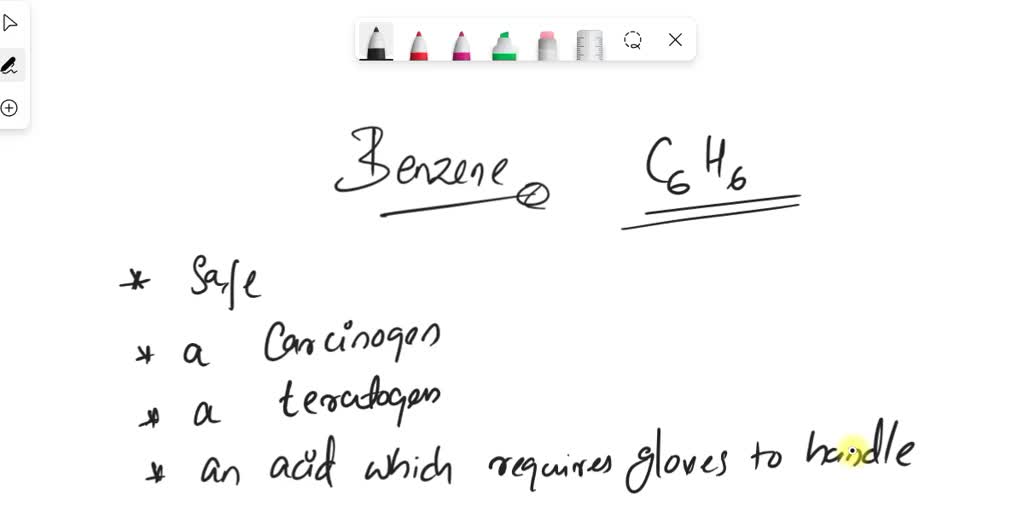 Benzene C6H6
* Safe
* a Carcinogen
* a teratogen
* an acid which requires gloves to handle